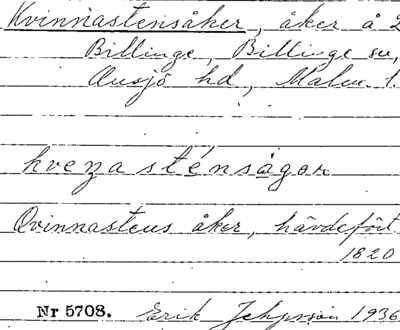 Kvinnastensåker, åker å 2
Billinge, Billinge sn,
Onsjö hd, Malm. l.
kvenasténsågar
Qvinnastens åker, hävdefört
1820
Nr 5708. Erik 1936